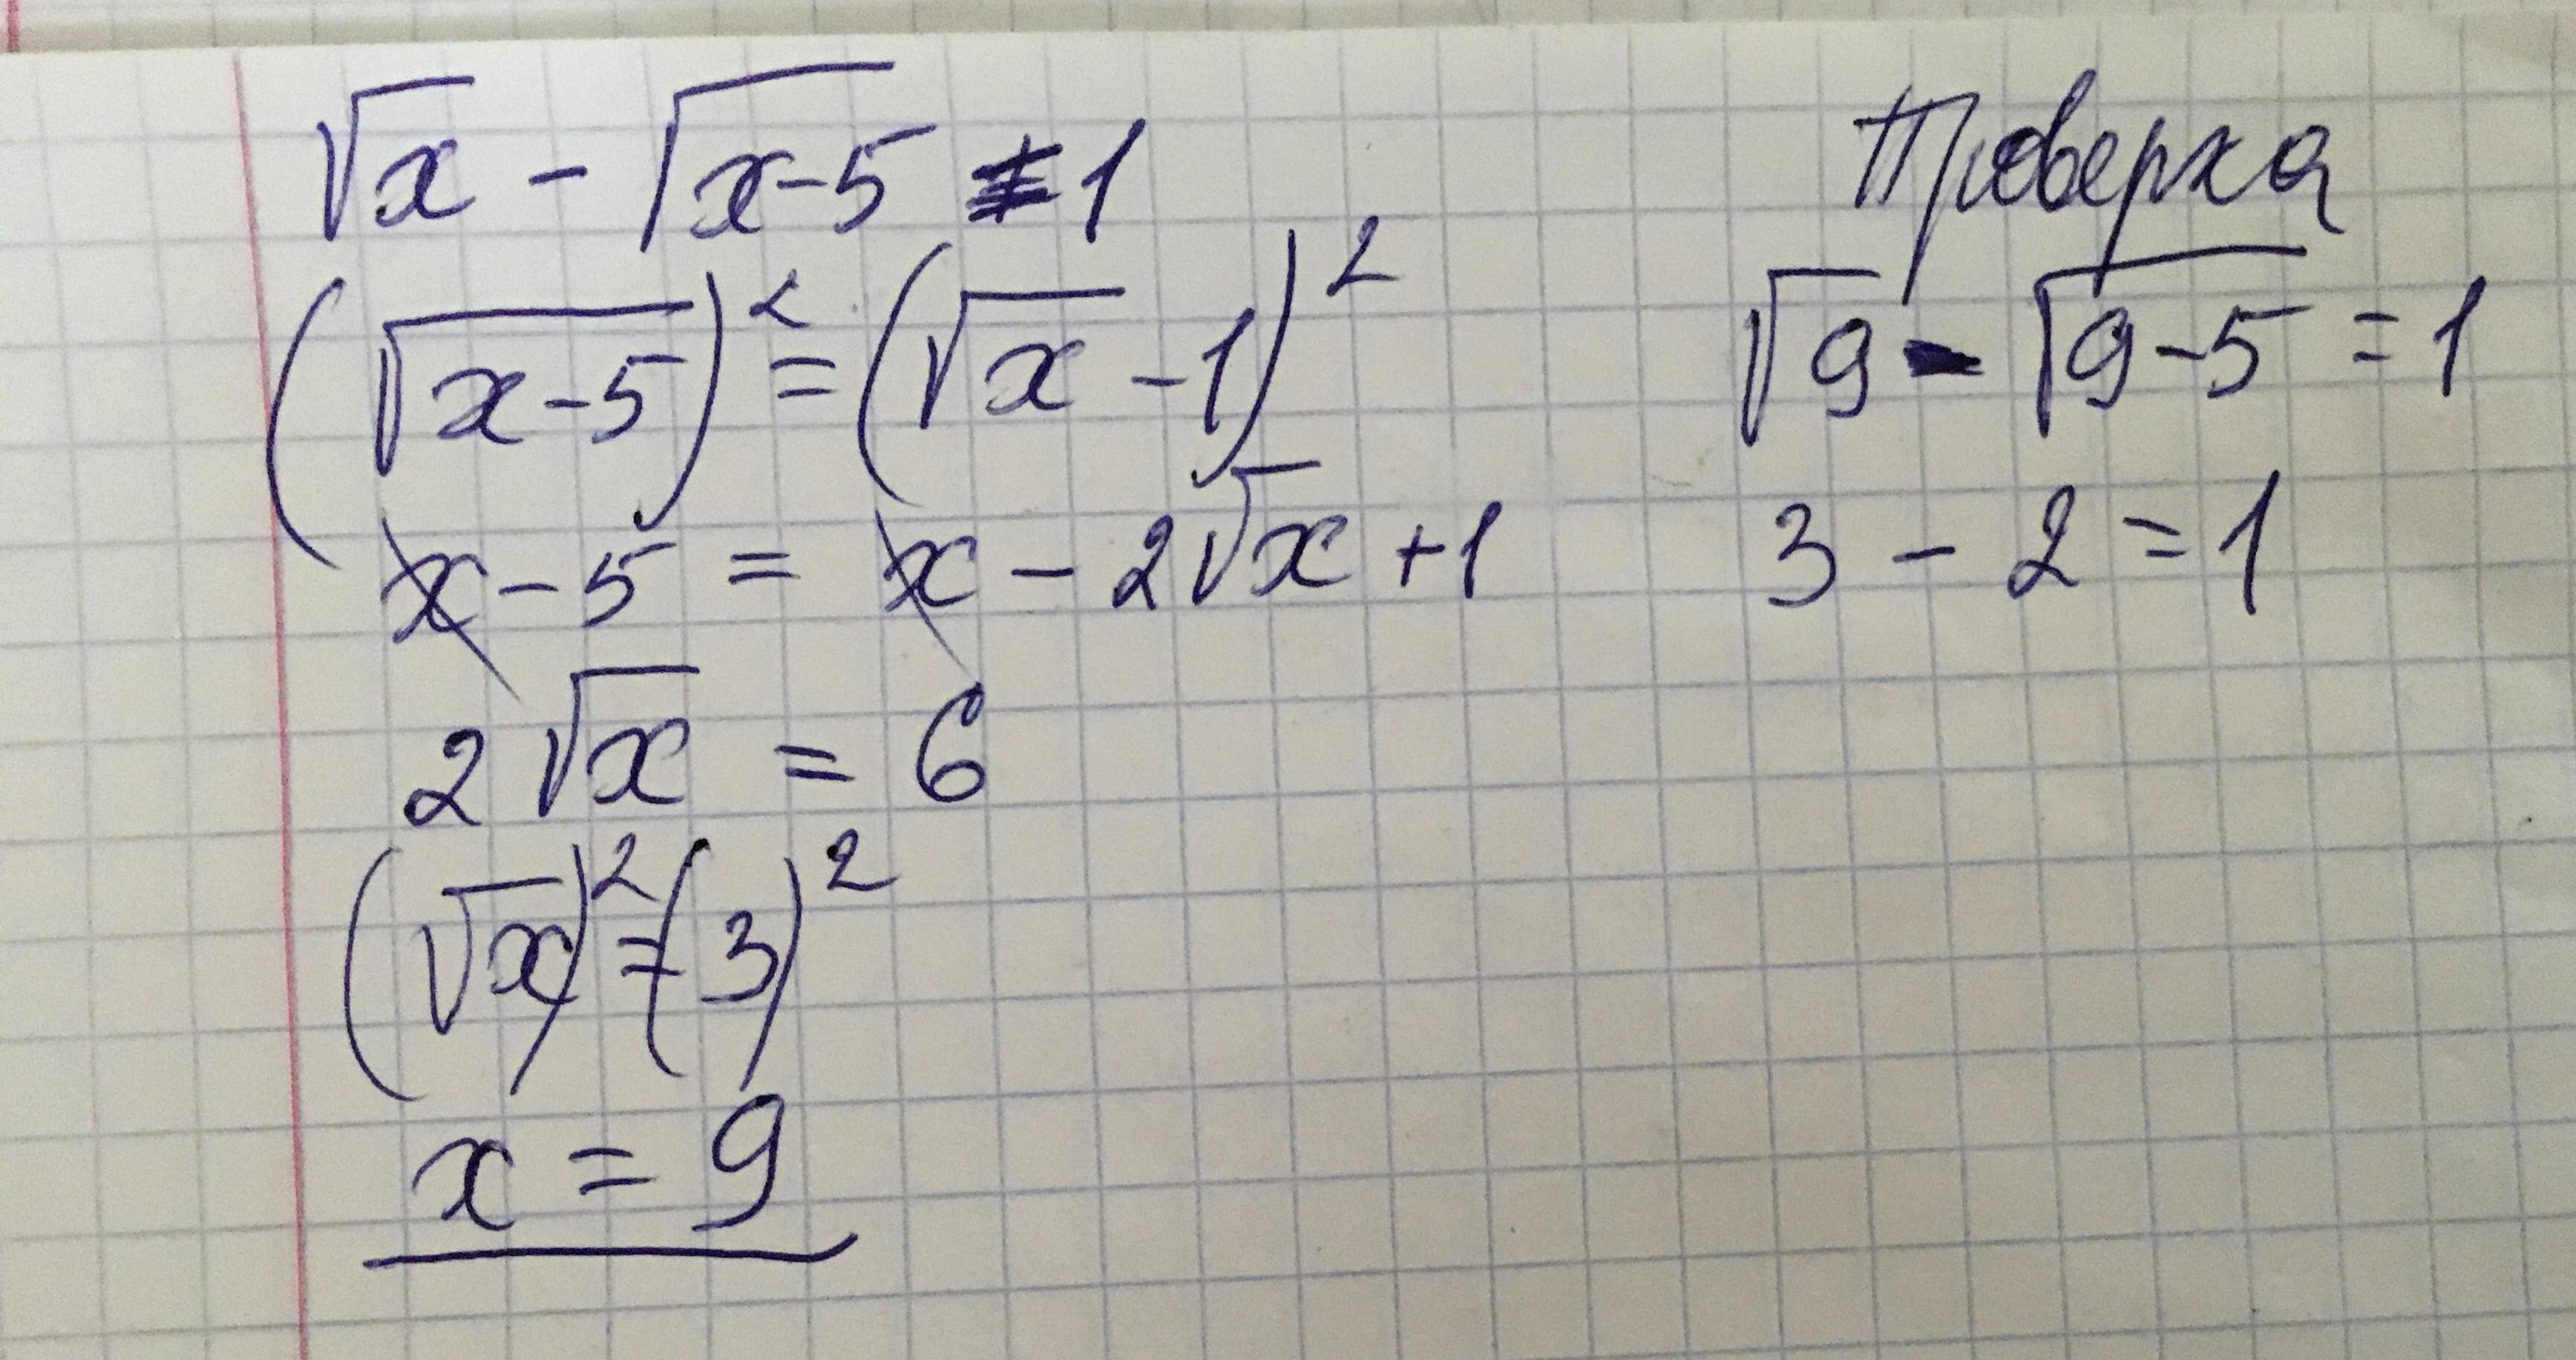 √x - √x-5 = 1
(√x-5)² = (√x - 1)²
x - 5 = x - 2√x + 1
2√x = 6
(√x)² = (3)²
x = 9
Проверка
√9 - √9-5 = 1
3 - 2 = 1